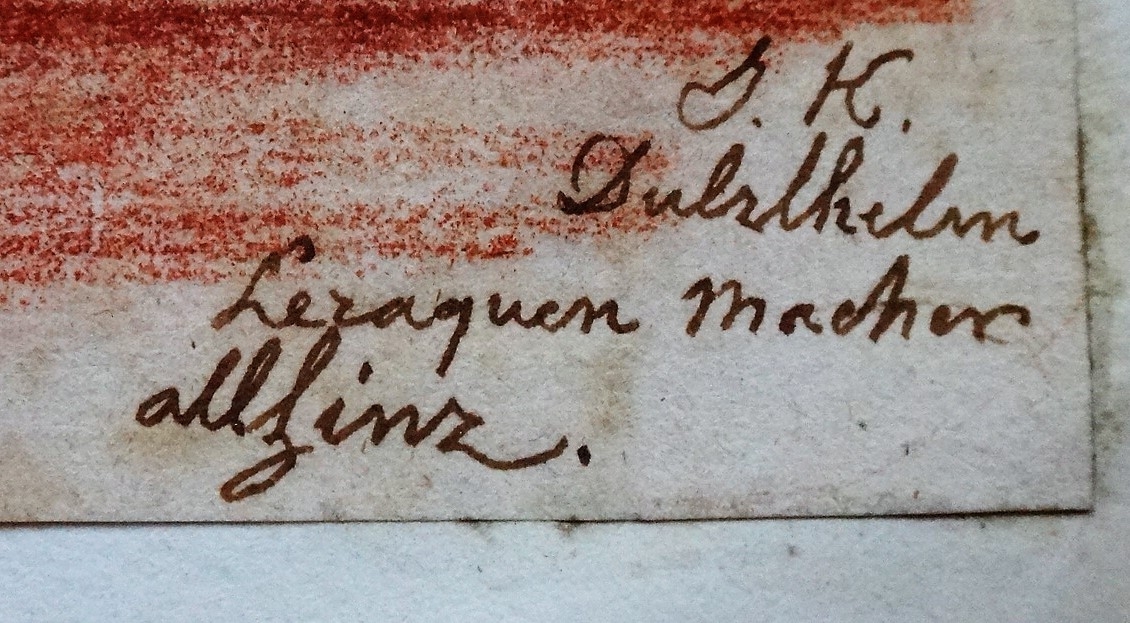 S. K.
Dulzlhelm
Lezaquen Macher
allzinz.